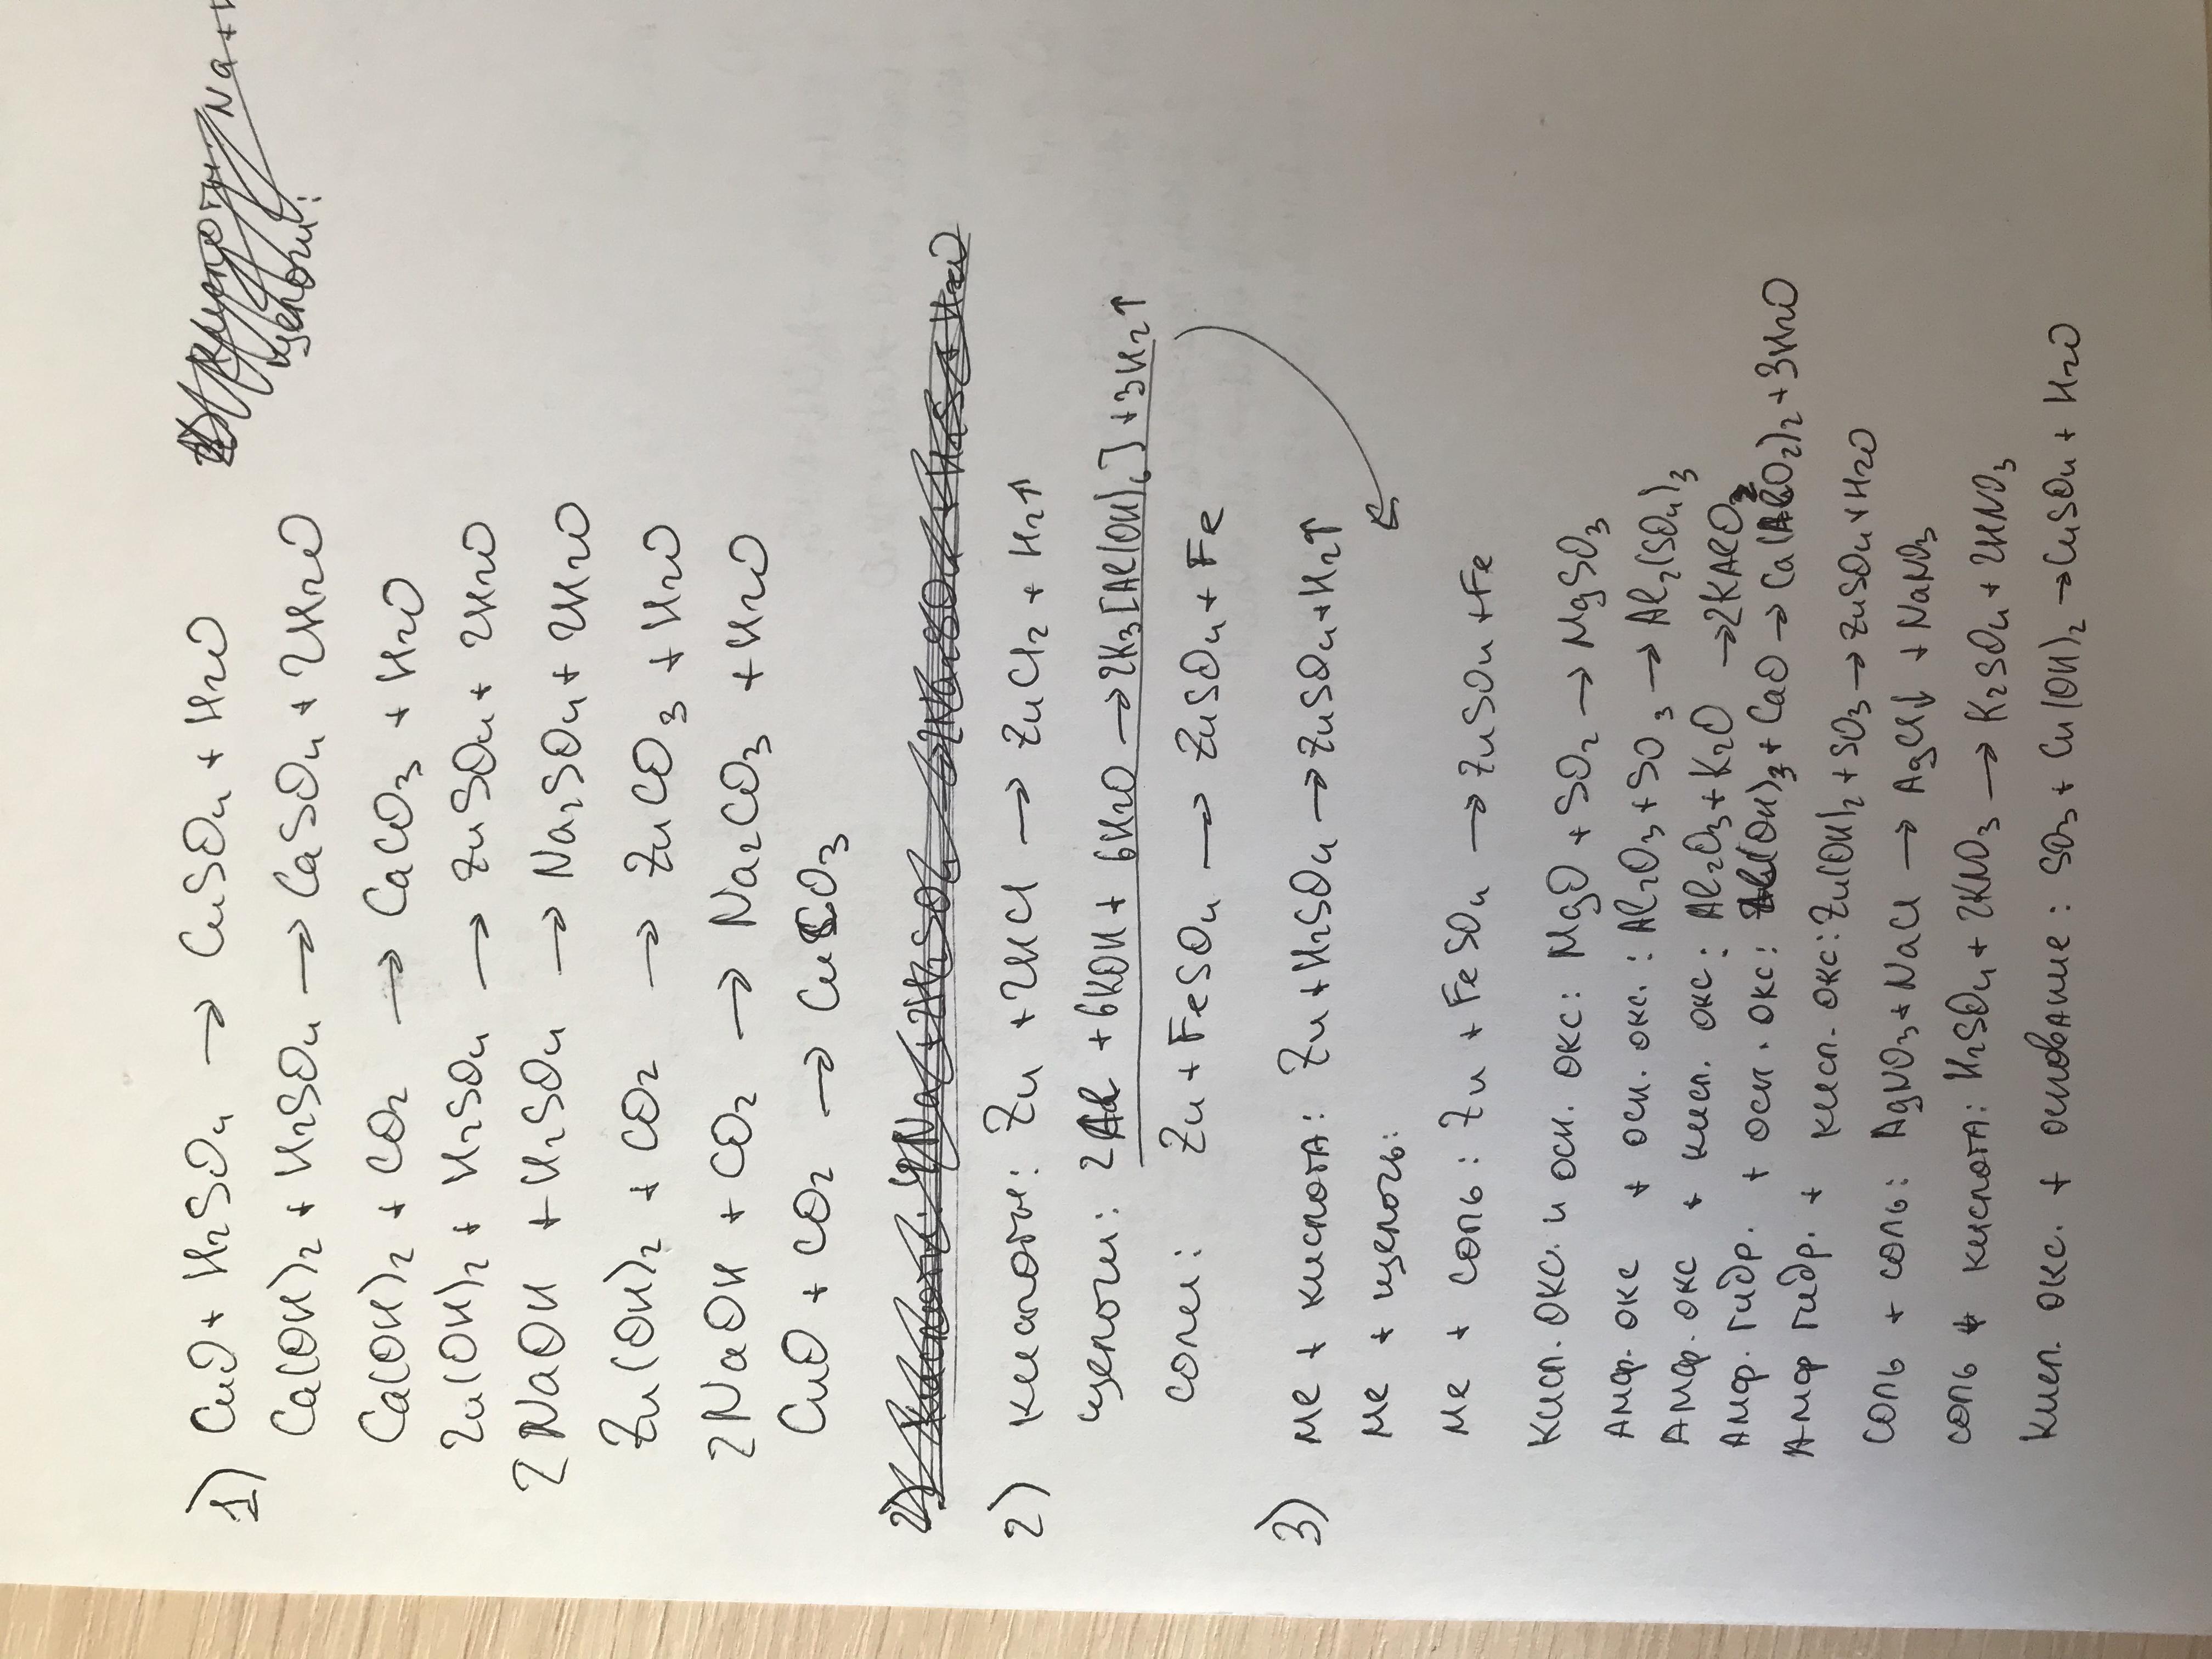 1) CuO + H2SO4 → CuSO4 + H2O
Ca(OH)2 + H2SO4 → CaSO4 + 2H2O
Ca(OH)2 + CO2 → CaCO3 + H2O
Zn(OH)2 + H2SO4 → ZnSO4 + 2H2O
2NaOH + H2SO4 → Na2SO4 + 2H2O
Zn(OH)2 + CO2 → ZnCO3 + H2O
2NaOH + CO2 → Na2CO3 + H2O
CuO + CO2 → CuCO3
щелочи:
Na +
2) кислоты: Zn + 2HCl → ZnCl2 + H2↑
щелочи: 2Al + 6KOH + 6H2O → 2K3[Al(OH)6] + 3H2↑
соли: Zn + FeSO4 → ZnSO4 + Fe
3) Ме + кислота: Zn + H2SO4 → ZnSO4 + H2↑
Ме + щелочь:
Ме + соль: Zn + FeSO4 → ZnSO4 + Fe
Кисл. окс. и осн. окс: MgO + SO2 → MgSO3
Амф. окс + осн. окс.: Al2O3 + SO3 → Al2(SO4)3
Амф. окс + кисл. окс: Al2O3 + K2O → 2KAlO2
Амф. гидр. + осн. окс: Al(OH)3 + CaO → Ca(AlO2)2 + 3H2O
Амф гидр. + кисл. окс: Zn(OH)2 + SO3 → ZnSO4 + H2O
Соль + соль: AgNO3 + NaCl → AgCl↓ + NaNO3
соль + кислота: H2SO4 + 2KNO3 → K2SO4 + 2HNO3
Кисл. окс. + основание: SO3 + Cu(OH)2 → CuSO4 + H2O